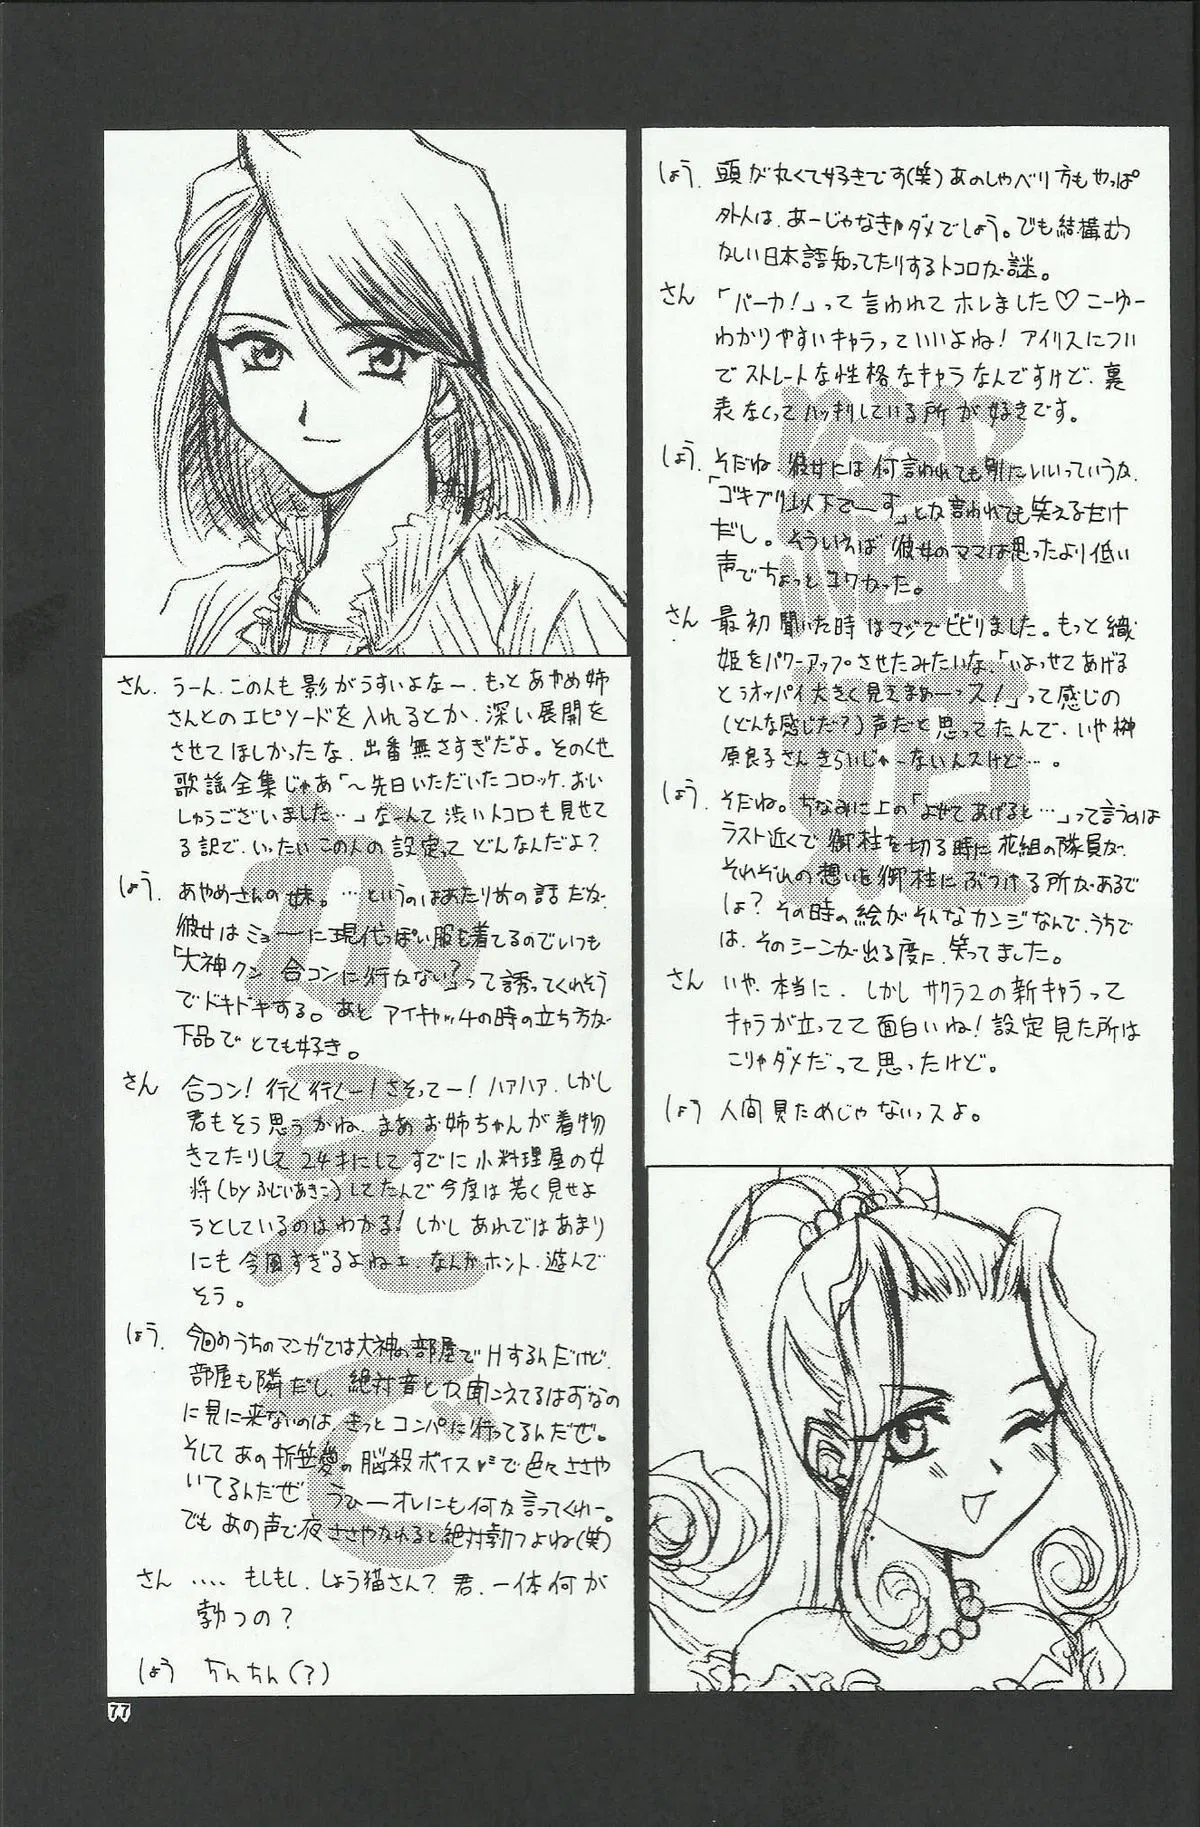 しょう. 頭が丸くて好きです(笑)あのしゃべり方もやっぱ
外人は、あーじゃなきゃダメでしょう。でも結構むつ
かしい日本語知ってたりするトコロが謎。
さん 「バーカ!」って言われてホレました♡こーゆー
わかりやすいキャラっていいよね!アイリスについ
でストレートな性格なキャラなんですけど、裏
表なくってハッキリしている所が好きです。
しょう. そだね.彼女には何言われても別にいいっていうか、
「ゴキブリ以下で〜す」とか言われても笑えるだけ
だし。そういえば彼女のママは思ったより低い
声でちょっとコワかった。
さん 最初聞いた時はマジでビビりました。もっと織
姫をパワーアップさせたみたいな、「いよっせてあげる
とうオッパイ大きく見えまぁーっス!」って感じの
(どんな感じだ?)声だと思ってたんで、いや榊
原良子さんきらいじゃーないんスけど…。
しょう. そだね。ちなみに上の「よせてあげると…」って言うのは
ラスト近くで御柱を切る時に花組の隊員が、
それぞれの想いを御柱にぶつける所があるで
しょ?その時の絵がそんなカンジなんで、うちで
は、そのシーンが出る度に、笑ってました。
さん いや、本当に、しかしサクラ2の新キャラって
キャラが立ってて面白いね!設定見た所は
こりゃダメだって思ったけど。
しょう 人間見ためじゃないっスよ。
織姫
さん. うーん、この人も影がうすいよなー、もっとあやめ姉
さんとのエピソードを入れるとか、深い展開を
させてほしかったな、出番無さすぎだよ。そのくせ
歌謡全集じゃあ「〜先日いただいたコロッケ、おい
しゅうございました…」なーんて渋いトコロも見せて
る訳で、いったいこの人の設定ってどんなんだよ?
しょう. あやめさんの妹。…というのはあたり前の話だが、
彼女はミョーに現代っぽい服を着てるのでいつも
「大神クン 合コンに行かない?」って誘ってくれそう
でドキドキする。あとアイキャッチの時の立ち方が
下品でとても好き。
さん 合コン!行く行くー!さそってー!ハァハァ、しかし
君もそう思うかね、まあお姉ちゃんが着物
きてたりして24才にしてすでに小料理屋の女
将(byふじいあきこ)してたんで今度は若く見せよ
うとしているのはわかる!しかしあれではあまり
にも今風すぎるよねェ、なんかホント、遊んで
そう。
しょう. 今回のうちのマンガでは大神の部屋でHするんだけど、
部屋も隣だし、絶対音とか聞こえてるはずなの
に見に来ないのは、きっとコンパに行ってるんだぜ。
そしてあの折笠愛の脳殺ボイスで色々ささや
いてるんだぜ うひーオレにも何か言ってくれー。
でもあの声で夜ささやかれると絶対勃つよね(笑)
さん ‥‥もしもし、しょう猫さん?君、一体何が
勃つの?
しょう ちんちん(?)
かえで
77